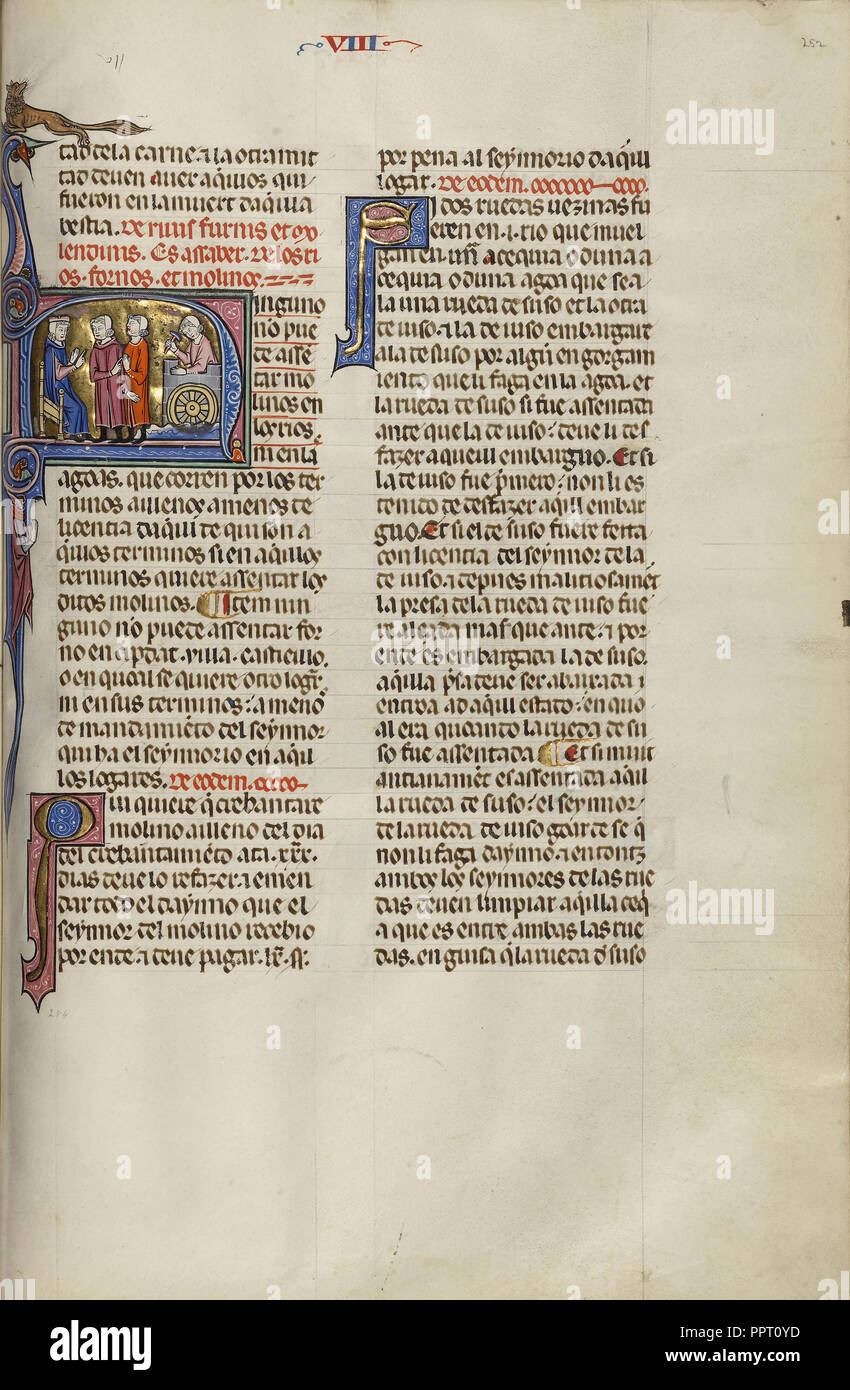 VIII
252
tad dela carne ⁊ la otra mit
tad deuen auer aqillos qui
fueron en la muert daqilla
bestia. De riuis furnis et mo
lendinis. Es assaber. de los ri
os. fornos. et molinos.
Ninguno
no pue
de asse
tar mo
linos en
los rios.
ni en las
agoas. que corren por los ter
minos aillenos a menos de
licencia daqui de qui son a
qillos terminos si en aqillos
terminos quiere assentar los
ditos molinos. Item nin
guno no puede assentar for
no en cipdat. uilla. castieillo.
o en qual se quiere otro logar.
ni en sus terminos: a meno
de mandamiento del seynnor
qui ha el seynnorio en aqil
los logares. De eodem.
Qui quiere q crebantare
molino ailleno del dia
del crebantamiento ata .xxx.
dias deue lo refazer a emen
dar todo el daynno que el
seynnor del molino recebio
por ende ⁊ deue pagar .lx. ss.
por pena al seynnorio daqil
logar. De eodem.
Si dos ruedas uezinas fu
eren en .i. rio que muel
gan en una acequia o duna a
cequia o duna agoa que sea
la una rueda de suso et la otra
de iuso ⁊ la de iuso embargare
a la de suso por algun engorgam
iento que li faga en la agoa. et
la rueda de suso si fue assentada
ante que la de iuso: deue li des
fazer aqueill embarguo. Et si
la de iuso fue primero: non li es
tenido de desfazer aqill embar
guo. Et si el de suso fuere feita
con licencia del seynnor de la
de iuso ⁊ depues maliciosament
la presa dela rueda de iuso fue
re alçada mas que ante: ⁊ por
ente es embargada la de suso.
aqilla presa deue ser abaixada ⁊
entroa ad aqil estado: en quo
al era quoando la rueda de su
so fue assentada Et si muit
antianament es assentada aqil
la rueda de suso: el seynnor
de la rueda de iuso goarde se q
non li faga daynno ⁊ entonz
ambos los seynnores de las rue
das deuen limpiar aqilla ceq
a que es entre ambas las rue
das. en guisa q la rueda d suso
alamy
Image ID: PPT0YD
www.alamy.com